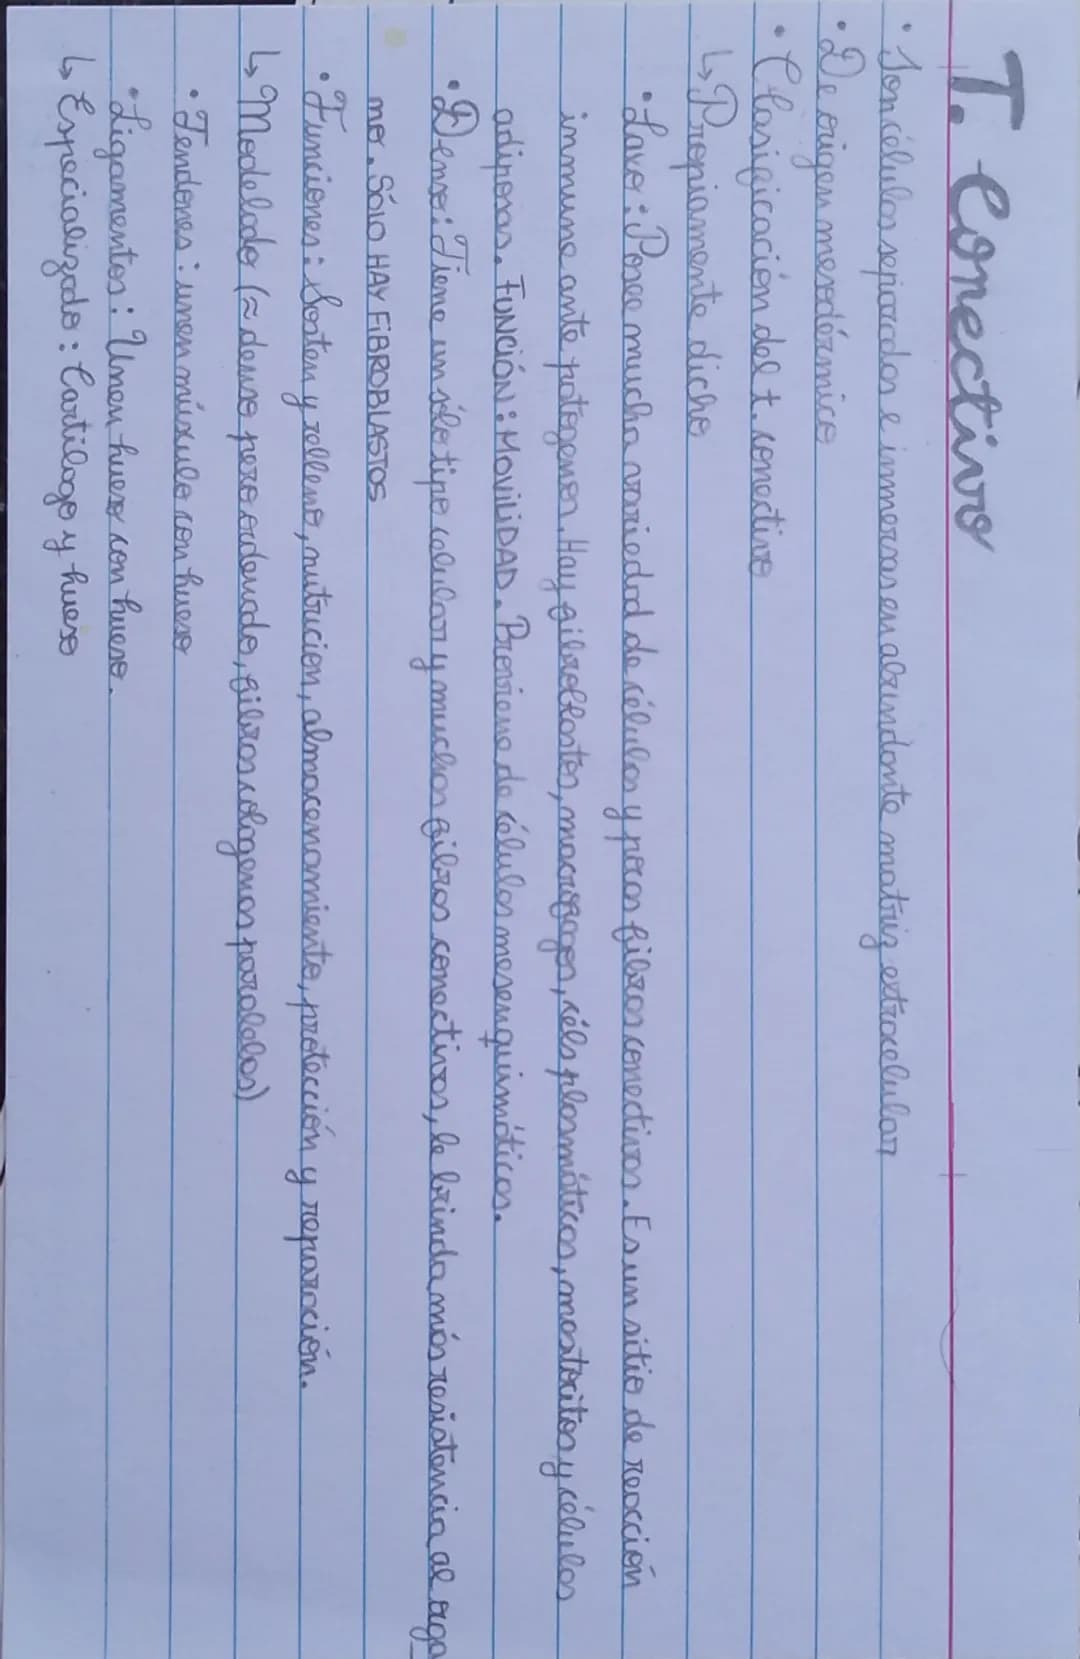 T. Conectivo
• Son células separadas e inmersas en abundante matriz extracelular
• De origen mesodérmico
• Clasificación del t. conectivo
↳ Propiamente dicho
• Laxo: Posee mucha variedad de células y pocas fibras conectivas. Es un sitio de reacción
inmune ante patogenos. Hay fibroblastos, macrofagos, céls plasmáticas, mastocitos y células
adiposas. FUNCIÓN: MOVILIDAD. Proviene de células mesenquimáticas.
• Denso: Tiene un sólo tipo celular y muchas fibras conectivas, le brinda más resistencia al orga
mo. SÓLO HAY FIBROBLASTOS
• Funciones: Sosten y relleno, nutricion, almacenamiento, protección y reparación.
↳ Modelado (≈ denso pero ordenado, fibras colagenas paralelas)
• Tendones: unen músculo con hueso
• Ligamentos: Unen hueso con hueso.
↳ Especializado: Cartílago y hueso